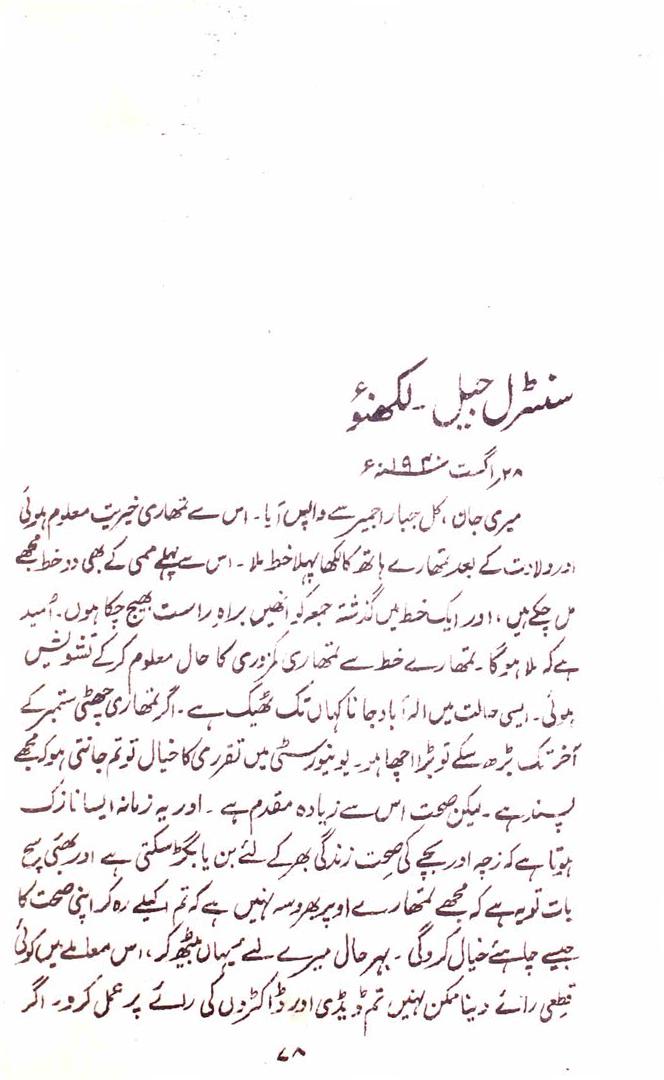 سنٹرل جیل۔ لکھنؤ
۲۸ اگست ۱۹۴۰ء
میری جان، کل جبار اجمیر سے واپس آیا۔ اس سے تمھاری خیریت معلوم ہوئی
اور ولادت کے بعد تمھارے ہاتھ کا لکھا پہلا خط ملا۔ اس سے پہلے ممی کے بھی دو خط مجھے
مل چکے ہیں، اور ایک خط میں گذشتہ جمعہ کو انھیں براہِ راست بھیج چکا ہوں۔ اُمید
ہے کہ ملا ہوگا۔ تمھارے خط سے تمھاری کمزوری کا حال معلوم کر کے تشویش
ہوئی۔ ایسی حالت میں الہ آباد جانا کہاں تک ٹھیک ہے۔ اگر تمھاری چھٹی ستمبر کے
آخر تک بڑھ سکے تو بڑا اچھا ہو۔ یونیورسٹی میں تقرری کا خیال تو تم جانتی ہو کہ مجھے
پسند ہے۔ لیکن صحت اس سے زیادہ مقدم ہے۔ اور یہ زمانہ ایسا نازک
ہوتا ہے کہ زچہ اور بچے کی صحت زندگی بھر کے لئے بن یا بگڑ سکتی ہے اور بھئی سچ
بات تو یہ ہے کہ مجھے تمھارے اوپر بھروسہ نہیں ہے کہ تم اکیلے رہ کر اپنی صحت کا
جیسے چاہئے خیال کرو گی۔ بہر حال میرے لئے یہاں بیٹھ کر، اس معاملے میں کوئی
قطعی رائے دینا ممکن نہیں تم ڈیڈی اور ڈاکٹروں کی رائے پر عمل کرو۔ اگر
۷۸